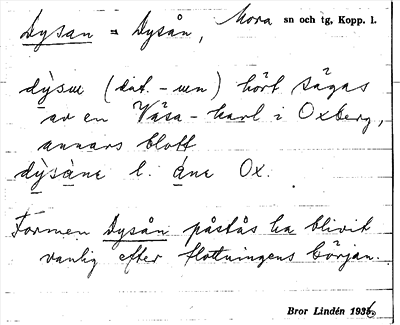 Dysan = Dysån, Mora sn och tg, Kopp. l.
dysm (dat. -un) hört sägas
av en Våsa-karl i Oxberg,
annars blott
dýsåne l. åne Ox.
Formen Dysån påstås ha blivit
vanlig efter flottningens början.
Bror Lindén 1936